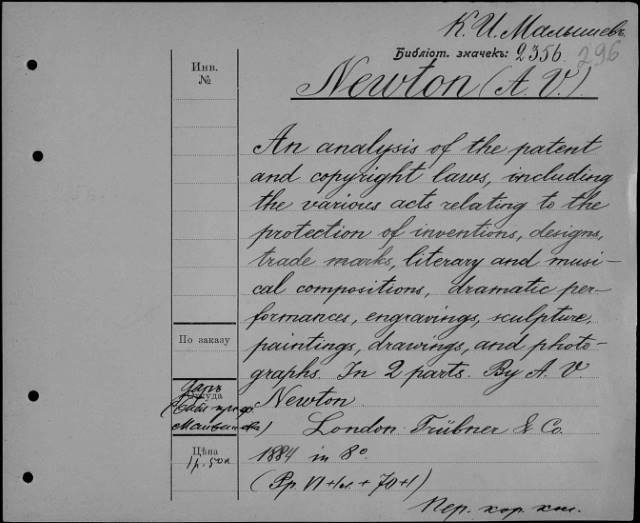 К. И. Малышевъ
Библіот. значекъ: 2356. 296
Инв.
№
Newton (A. V.)
An analysis of the patent
and copyright laws, including
the various acts relating to the
protection of inventions, designs,
trade marks, literary and musi-
cal compositions, dramatic per-
formances, engravings, sculpture,
paintings, drawings, and photo-
graphs. In 2 parts. By A. V.
Newton
London Trübner & Co.
1884 in 8°
(Pp VI+1л. + 70+1)
По заказу
Даръ
Откуда
Цѣна
1 р. 50 к
Пер. хор. кол.